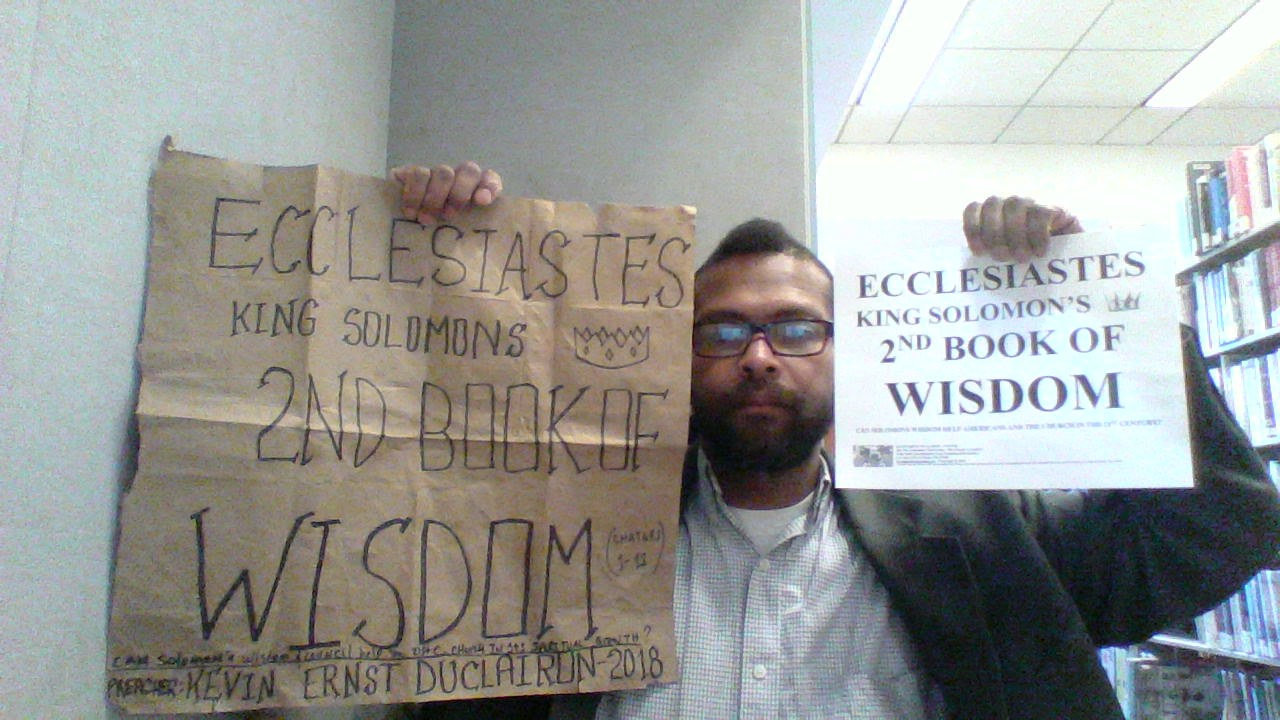 ECCLESIASTES
KING SOLOMONS
2ND BOOK OF
WISDOM
1-12
CAN Solomon's wisdom
PREACHER: KEVIN ERNST DUCLAIRON-2018
ECCLESIASTES
KING SOLOMON'S
2ND BOOK OF
WISDOM
CAN SOLOMONS WISDOM HELP AMERICANS AND THE CHURCH IN THE 21ST CENTURY?